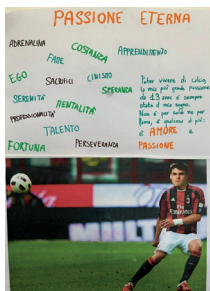 PASSIONE ETERNA
ADRENALINA
FAME
COSTANZA
APPRENDIMENTO
EGO
SACRIFICI
CINISMO
SPERANZA
SERENITA'
MENTALITA'
PROFESSIONALITÀ
TALENTO
FORTUNA
PERSEVERANZA
Poter vivere di calcio,
la mia più grande passione
da 13 anni è sempre
stato il mio sogno.
Non è per soldi né per
fama, è qualcosa di più:
è AMORE e
PASSIONE